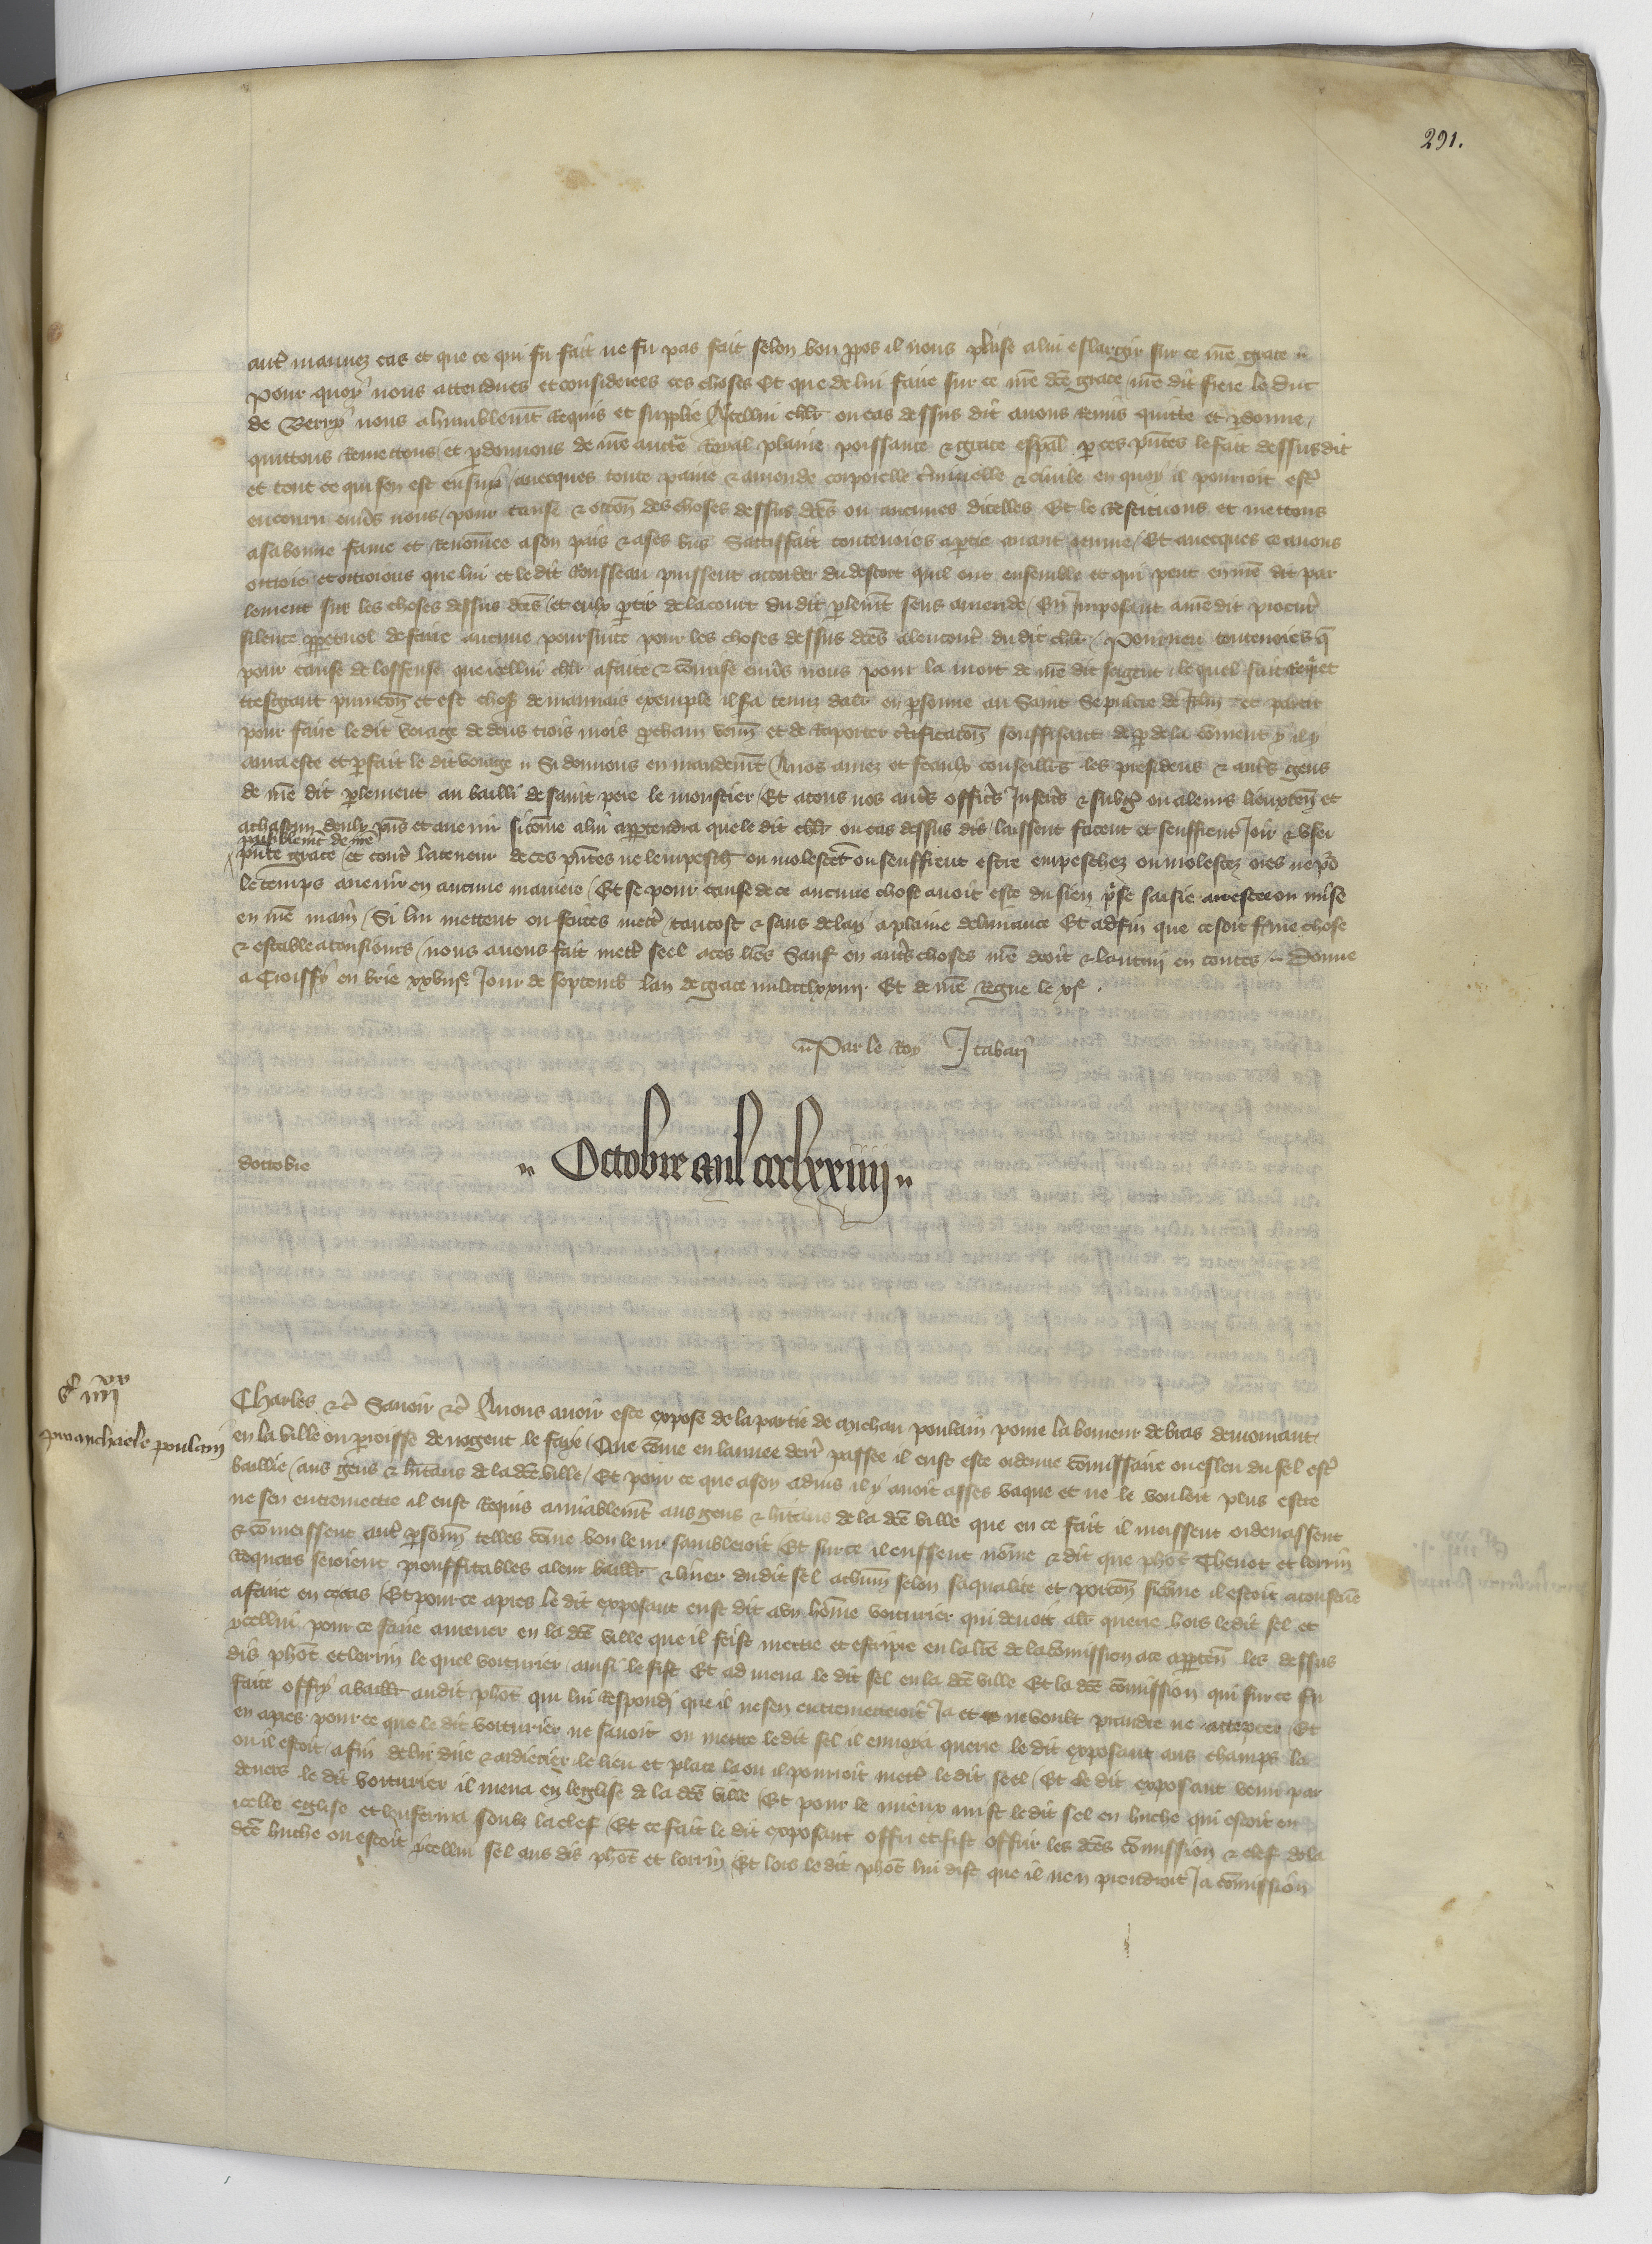 291.
autr̃ mauuez cas et que ce qui fu fait ne fu pas fait selon bon ppos il nous plaise a lui eslargir sur ce nr̃e grace
Pour quoy nous attendues et considerees ces choses Et que de lui faire sur ce nr̃e dc̃e grace nr̃e dit frere le duc
de Berry nous a humblemt̃ Requis et supplie A icellui chlr̃ ou cas dessus dit auons remis quitte et pardonne
quittons Remettons et pdonnons de nr̃e auctẽ Royal plaine poissance & grace espãl p ces pñtes le fait dessusdit
et tout ce qui sen est ensuy auecques toute paine & amende corporelle criminelle & ciuile en quoy il pourroit estr̃
encouru enuers nous pour cause & occõn des choses dessus dc̃es ou aucunes dicelles Et le Restituons et mettons
a sa bonne fame et Renõmee a son pais & a ses biẽs Sattiffait toutesuoies a ptie auant euure Et auecques ce auons
ottroie et ottroions que lui et ledit Rousseau puissent accorder du descort quil ont ensemble et qui pent en nr̃e dit par
lement sur les choses dessus dc̃es et eulx ptir de la court du dit plemt̃ sens amende En Imposant a nr̃e dit procur̃
silence ppetuel de faire aucune poursuite pour les choses dessus dc̃es alencontr̃ du dit chlr̃ Pourueu toutesuoies q̃
pour cause de loffense que icellui chlr̃ a faite & cõmise enuers nous pour la mort de nr̃e dit sergent le quel fait requiet
tresgrant punicõn et est chose de mauuais exemple il sera tenuz daler en psonne au Saint Sepulcre de Jhrl̃m et partir
pour faire le dit voiage dedens trois mois prochain venãs et de Raporter certificacõn souffisant de p dela cõment il y
aura este et pfait le dit voiage Si donnons en mandemt̃ A nos amez et feaulx conseillrs̃ les presidens & autrs̃ gens
de nr̃e dit plement au bailli de saint pere le moustier Et a tous nos autrs̃ officrs̃ Justicrs̃ & subgez ou a leurs lieuxteñ et
a chascun deulx pñs et auenir si cõme a lui appartendra que le dit chlr̃ ou cas dessus dis laissent facent et seuffrent Joir & vser
paisiblemt̃ de nr̃e
pñte grace et contr̃ la teneur de ces pñtes ne lempeschẽt ou molestẽt ou seuffrent estre empeschez ou molestez ores ne p
le temps auenir en aucune maniere Et se pour cause de ce aucune chose auoit este du sien prise saisie arrestee ou mise
en nr̃e main Si lui mettent ou facent mettr̃ tantost & sans delay a plaine deliurance Et adfin que ce soit ferme chose
& estable a tousiours nous auons fait mettr̃ seel a ces lr̃es Sauf en autrs̃ choses nr̃e droit & lautrui en toutes Donne
a Croissy en brie xxviije Jour de septemb̃ lan de grace mil ccc lxxiiij Et de nr̃e Regne le xje
Par le Roy J tabari
doctobre
Octobre mil ccc lxxiiij
iiijxx
pro michaele poulain
Charles &c̃ Sauoir &c̃ A nous auoir este expose de la partie de michau poulain poure laboureur de bras demourant
en la ville ou paroisse de nogent le faye Que cõme en lannee derr̃ passee il eust este ordenne cõmissaire ou esleu du sel estr̃
baillie aus gens & hãitans de la dc̃e ville Et pour ce que a son aduis il y auoit asses vaque et ne le vouloit plus estre
ne sen entremettre il eust Requis amiablemt̃ aus gens & hãitans de la dc̃e ville que en ce fait il meissent ordenassent
& cõmeissent autr̃ psonñ telles cõme bon leur sambleroit Et sur ce il eussent nõme & dit que phõt Theuot et lorrin
Requeus seroient prouffitables a leur baillr̃ & liurer dudit sel a chũn selon sa qualite et porcõn si cõme il estoit acoustũe
a faire en ce cas Et pour ce apres le dit exposant eust dit a vn hõme voiturier qui deuoit aler querre hors le dit sel et
ycellui pour ce faire amener en la dc̃e ville que il feist mettre et escripre en la lr̃e de la cõmission a ce apparteñ les dessus
dis phõt et lorrin le quel voiturier ainsi le fist Et ad mena le dit sel en la dc̃e ville Et la dc̃e cõmission qui sur ce fu
faite offry a baillr̃ audit phõt qui lui Respondi que il ne sen entremettroit Ja et ne voult prandre ne accepter Et
en apres pour ce que le dit voiturier ne sauoit ou mettre ledit sel il enuoya querre le dit exposant aus champs la
ou il estoit afin de lui dire & ardiecier le lieu et place la ou il pourroit mettr̃ le dit seel Et le dit exposant venu par
deuers le dit voiturier il mena en leglise de la dc̃e ville Et pour le mieux mist le dit sel en huche qui estoit en
icelle eglise et lenferma soubz la clef Et ce fait le dit exposant offri et fist offrir les dc̃es cõmission & clef de la
dc̃e huche ou estoit ycellui sel aus dis phõt et lorrin Et lors le dit phõt lui dist que il nen prendroit Ja cõmission